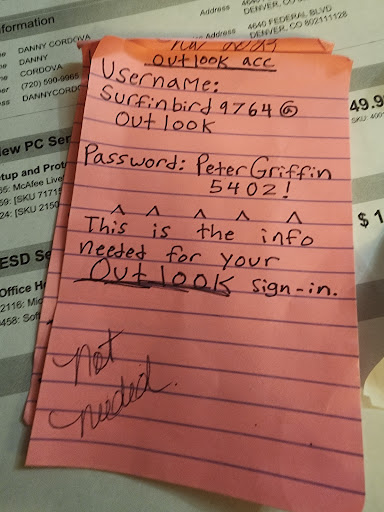 formation
DANNY CORDOVA
DANNY
CORDOVA
(720) 590-9965
DANNYCORD
Address
4640 FEDERAL BLVD
DENVER, CO
Address
4640 FEDERAL BLVD
DENVER, CO 802111128
Outlook acc
Username:
Surfinbird9764@
Outlook
Password: PeterGriffin
5402!
^ ^ ^ ^ ^
This is the info
needed for your
Outlook sign-in.
Not
needed.
49.9
SKU: 400
$ 1
ew PC Ser
tup and Prot
65: McAfee Live
59: [SKU 71715
24: [SKU 2150
ESD Se
Office H
2116: Mic
0458: Sof